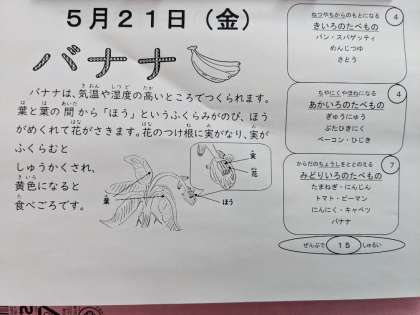 5月21日（金）
バナナ
バナナは、気温や湿度の高いところでつくられます。
葉と葉の間から「ほう」というふくらみがのび、ほう
がめくれて花がさきます。花のつけ根に実がなり、実が
ふくらむと
しゅうかくされ、
黄色になると
食べごろです。
葉
実
花
ほう
ねつやちからのもとになる
きいろのたべもの
4
パン・スパゲッティ
めんじつゆ
さとう
ちやにくやほねになる
あかいろのたべもの
4
ぎゅうにゅう
ぶたひきにく
ベーコン・ひじき
からだのちょうしをととのえる
みどりいろのたべもの
7
たまねぎ・にんじん
トマト・ピーマン
にんにく・キャベツ
バナナ
ぜんぶで 15 しゅるい